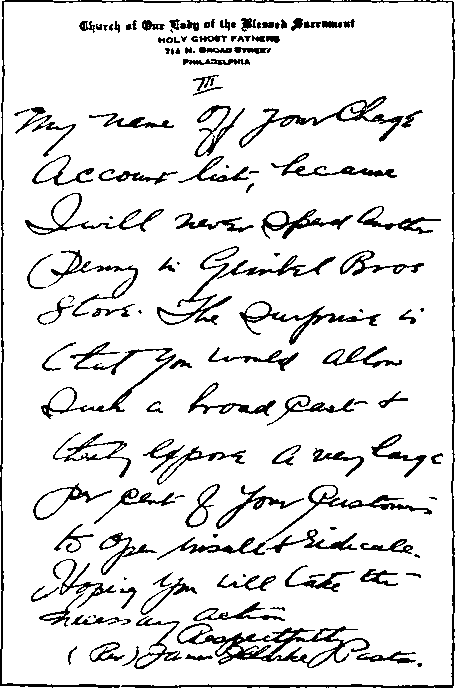 Church of Our Lady of the Blessed Sacrament
HOLY GHOST FATHERS
714 N. BROAD STREET
PHILADELPHIA
III
My name off your Charge
Account list, because
I will never spend another
Penny in Gimbel Bros
Store. The surprise is
that you would allow
such a broad cast &
thereby expose a very large
per cent of your Customers
to open insult & ridicule.
Hoping you will take the
necessary action
Respectfully
(Rev) James Clarke Pastor.